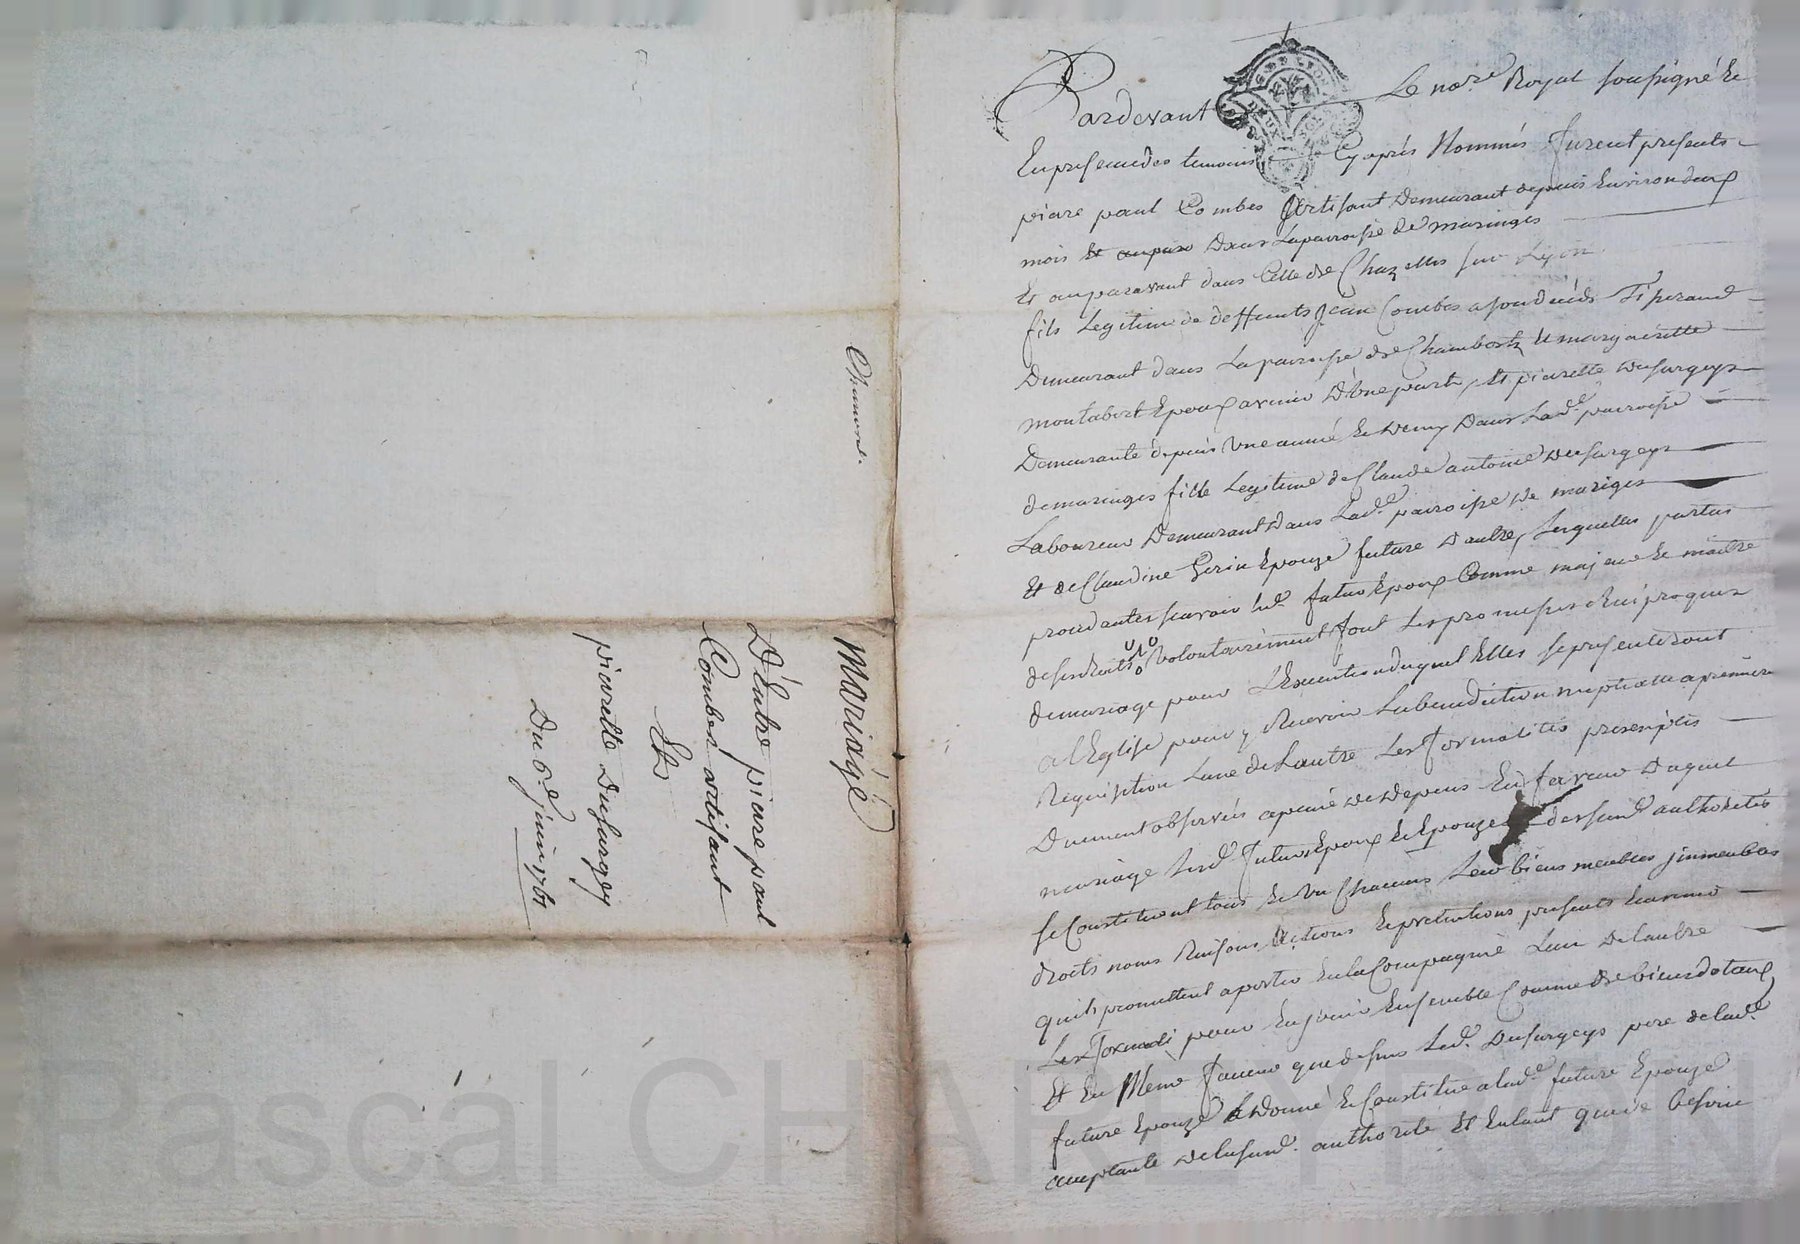 Chamont
Mariage
D'Entre piarre paul
Combes artisant
Et
piarette Dufurgey
Du 6e juin 1761
G. DE LYON
DEUX SOLS
Pardevant Le nore Royal soussigné Et
En presence des temoins Cyaprés Nommés furent presents
piare paul Combes Artisant Demeurant depuis Environ deux
mois Et aupara Dans Laparroisse de maringes
Et auparavant dans Celle de Chazelles sur Lyon
fils Legitime de deffunts Jean Combes a son decéds Tisserand
Demeurant dans La parroisse de Chambost Et margueritte
montabert Epoux avenir D'une part, Et piarette Dufurgeys
Demeurante depuis Une année Et Demy Dans Lade parroisse
de maringes fille Legitime de Claude antoine Dufurgeys
Laboureur Demeurant Dans Lade parroisse De maringes
Et de Claudine Gerin Epouze future D'autre, Lesquelles parties
procedantes scavoir Led. futur Epoux Comme majeur Et maitre
de ses droits Volontairement font Les promesses Reciproques
de mariage pour L'Execution duquel Elles se presenteront
a l'Eglise pour y Recevoir La benediction nuptialle a premiere
Requisition L'une de L'autre Les formalites prescrites
Dument observées a peine De Depens En faveur Duquel
mariage Lesd. futurs Epoux Et Epouze de susd. authorités
se Constituent tous Et Un Chacuns Leur biens meubles jmmeubles
droits noms Raisons Actions Et pretentions presents Et avenir
qu'ils promettent aporter En la Compagnie L'un De L'autre
pour En jouir Ensemble Comme De biens dotaux
Et En Meme faveur que dessus Led. Dufurgeys pere de lade
future Epouze a Donné Et Constitue a lade future Epouze
acceptante De la susd. authorité Et Entant que de besoin
Pascal CHAREYRON